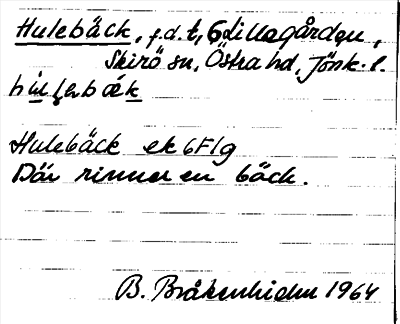 Hulebäck, f.d. t, Lillagården,
Skirö sn, Östra hd, Jönk. l.
Hulebäck ek 6F1g
Där rinner en bäck.
B. Bråkenhielm 1964